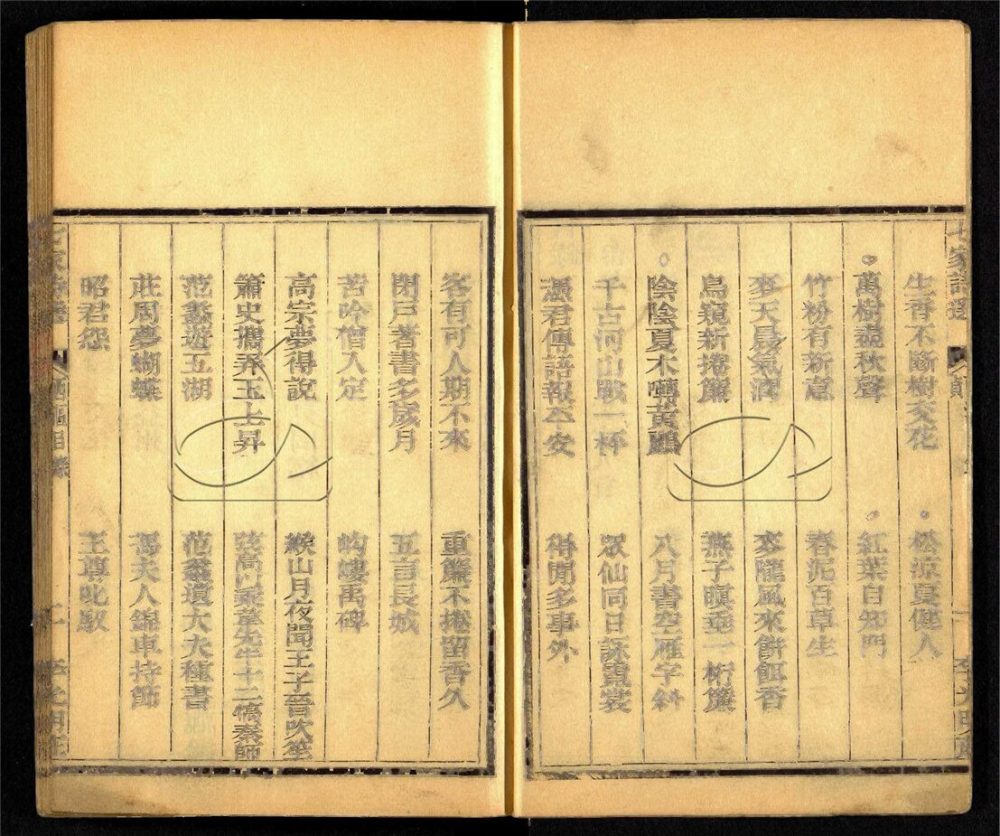 生香不斷樹交花
松涼夏健人
萬樹盡秋聲
紅葉自知門
竹粉有新意
春泥百草生
麥天晨氣潤
麥隴風來餅餌香
鳥窺新捲簾
燕子暝垂一桁簾
陰陰夏木囀黃鸝
八月書空雁字斜
千古河山戰一杯
眾仙同日詠霓裳
憑君傳語報平安
得閒多事外
七家詩選
客有可人期不來
重簾不捲留香久
閉戶著書多歲月
五言長城
苦吟僧入定
岣嶁禹碑
高宗夢得說
緱山月夜聞王子晉吹笙
簫史攜弄玉上昇
弦高以乘韋先牛十二犒秦師
范蠡遊五湖
范蠡遺大夫種書
莊周夢蝴蝶
馮夫人錦車持節
昭君怨
王尊叱馭
七家詩選
目錄
二
李光明莊